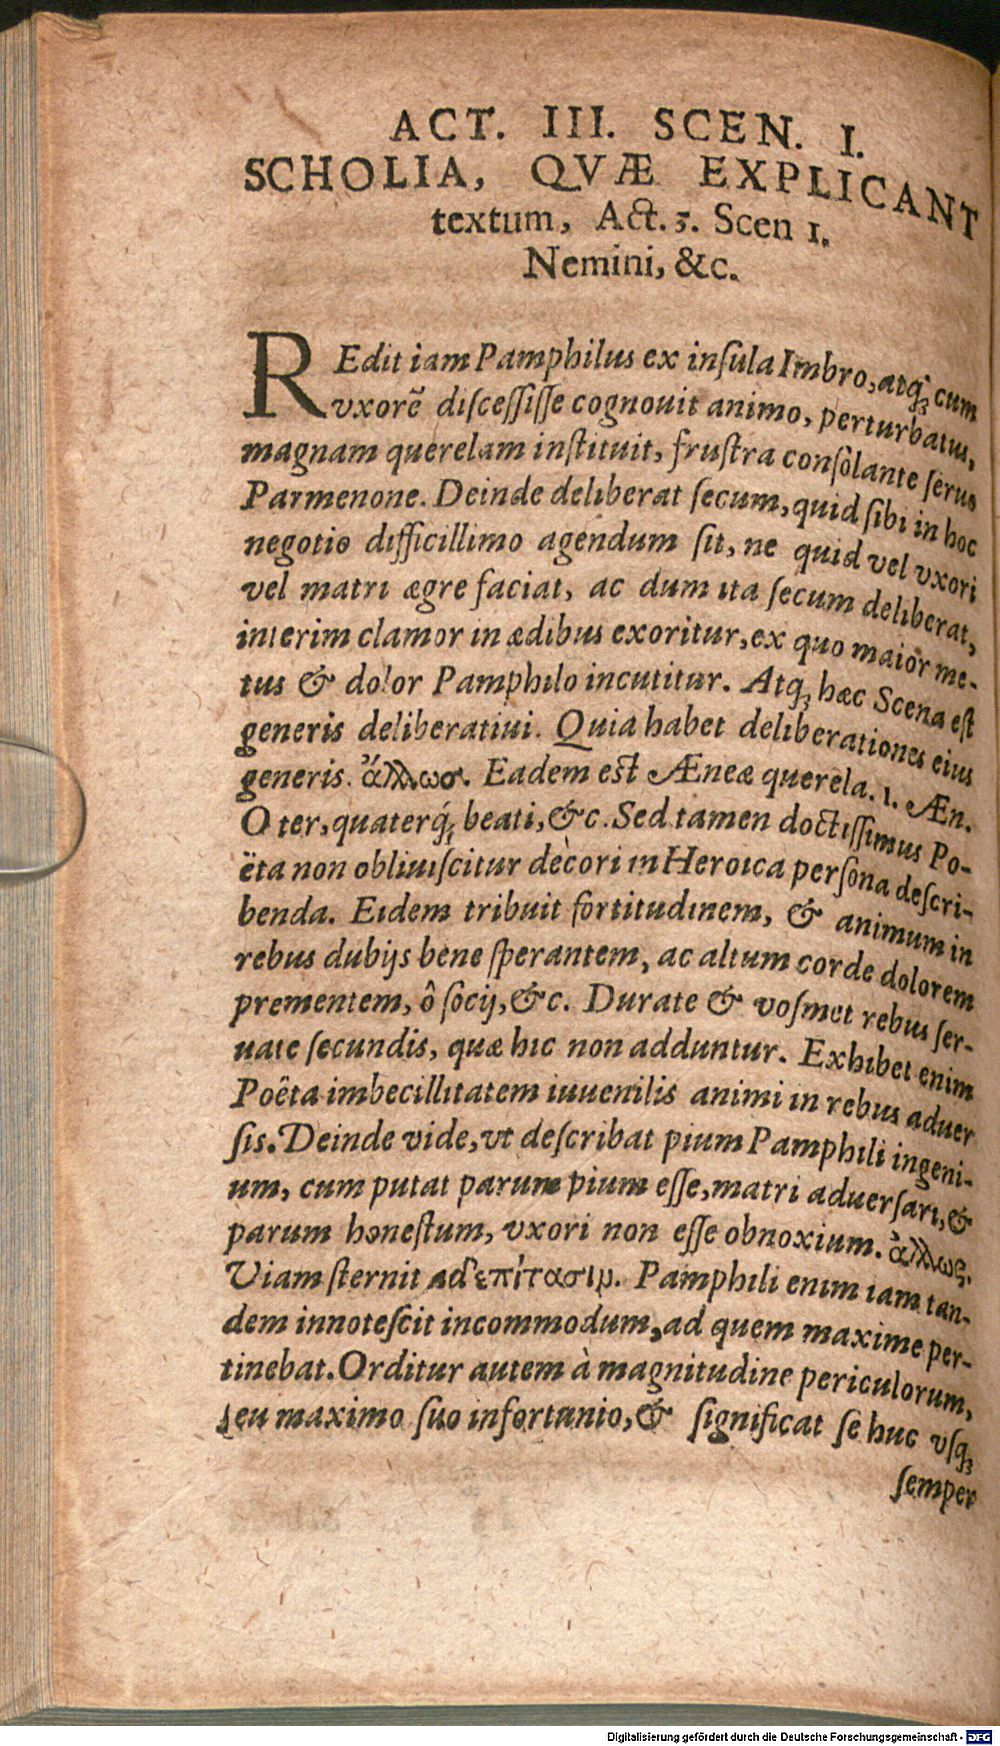 ACT. III. SCEN. I.
SCHOLIA, QVÆ EXPLICANT
textum, Act. 3. Scen 1.
Nemini, &c.
REdit iam Pamphilus ex inſula Imbro, atq; cum
vxorẽ diſceſſiſſe cognouit animo, perturbatus,
magnam querelam inſtituit, fruſtra conſolante ſeruo
Parmenone. Deinde deliberat ſecum, quid ſibi in hoc
negotio difficillimo agendum ſit, ne quid vel vxori
vel matri ægre faciat, ac dum ita ſecum deliberat,
interim clamor in ædibus exoritur, ex quo maior me-
tus & dolor Pamphilo incutitur. Atq; hæc Scena eſt
generis deliberatiui. Quia habet deliberationes eius
generis. ἄλλωσ. Eadem eſt Æneæ querela. 1. Æn.
O ter, quaterq́; beati, &c. Sed tamen doctiſſimus Po-
ëta non obliuiſcitur decori in Heroica perſona deſcri-
benda. Eidem tribuit fortitudinem, & animum in
rebus dubijs bene ſperantem, ac altum corde dolorem
prementem, ô ſocij, &c. Durate & voſmet rebus ſer-
uate ſecundis, quæ hic non adduntur. Exhibet enim
Poêta imbecillitatem iuuenilis animi in rebus aduer
ſis. Deinde vide, vt deſcribat pium Pamphili ingeni-
um, cum putat parum pium eſſe, matri aduerſari, &
parum honeſtum, vxori non eſſe obnoxium. ἄλλως.
Viam ſternit ad ἐπίτασιμ. Pamphili enim iam tan-
dem innoteſcit incommodum, ad quem maxime per-
tinebat. Orditur autem à magnitudine periculorum,
ſeu maximo ſuo infortunio, & ſignificat ſe huc vſq;
ſemper
Digitalisierung gefördert durch die Deutsche Forschungsgemeinschaft - DFG